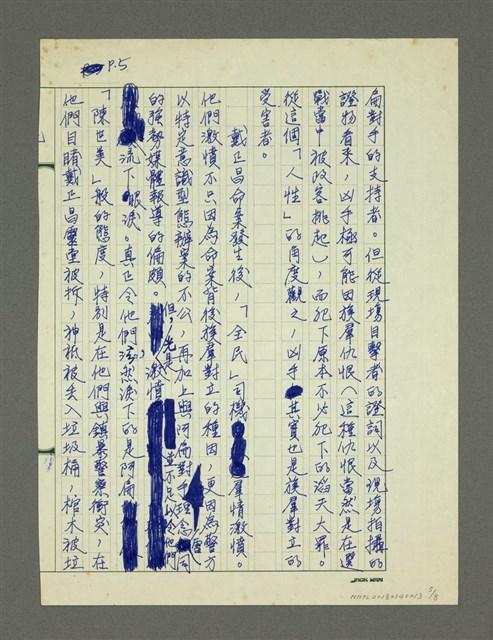 P.5
扁對手的支持者。但從現場目擊者的證詞以及現場拍攝的
證物看來，凶手極可能因族羣仇恨（這種仇恨當然是在選
戰當中被政客挑起），而犯下原本不必犯下的滔天大罪。
從這個「人性」的角度觀之，凶手其實也是族羣對立的
受害者。
戴正昌命案發生後，「全民」司機羣情激憤。
他們激憤不只因為命案背後族羣對立的種因，更因為警方
以特定意識型態辦案的不公，再加上與阿扁對手理念同
的強勢媒體報導的偏頗。但，光是激憤並不足以令他們
流下眼淚。真正令他們潸然淚下的是阿扁
「陳世美」般的態度，特別是在他們與鎮暴警察衝突，在
他們目睹戴正昌靈堂被拆，神祇被丟入垃圾桶，棺木被垃
JACK MAN
NMTL20180140013 5/8